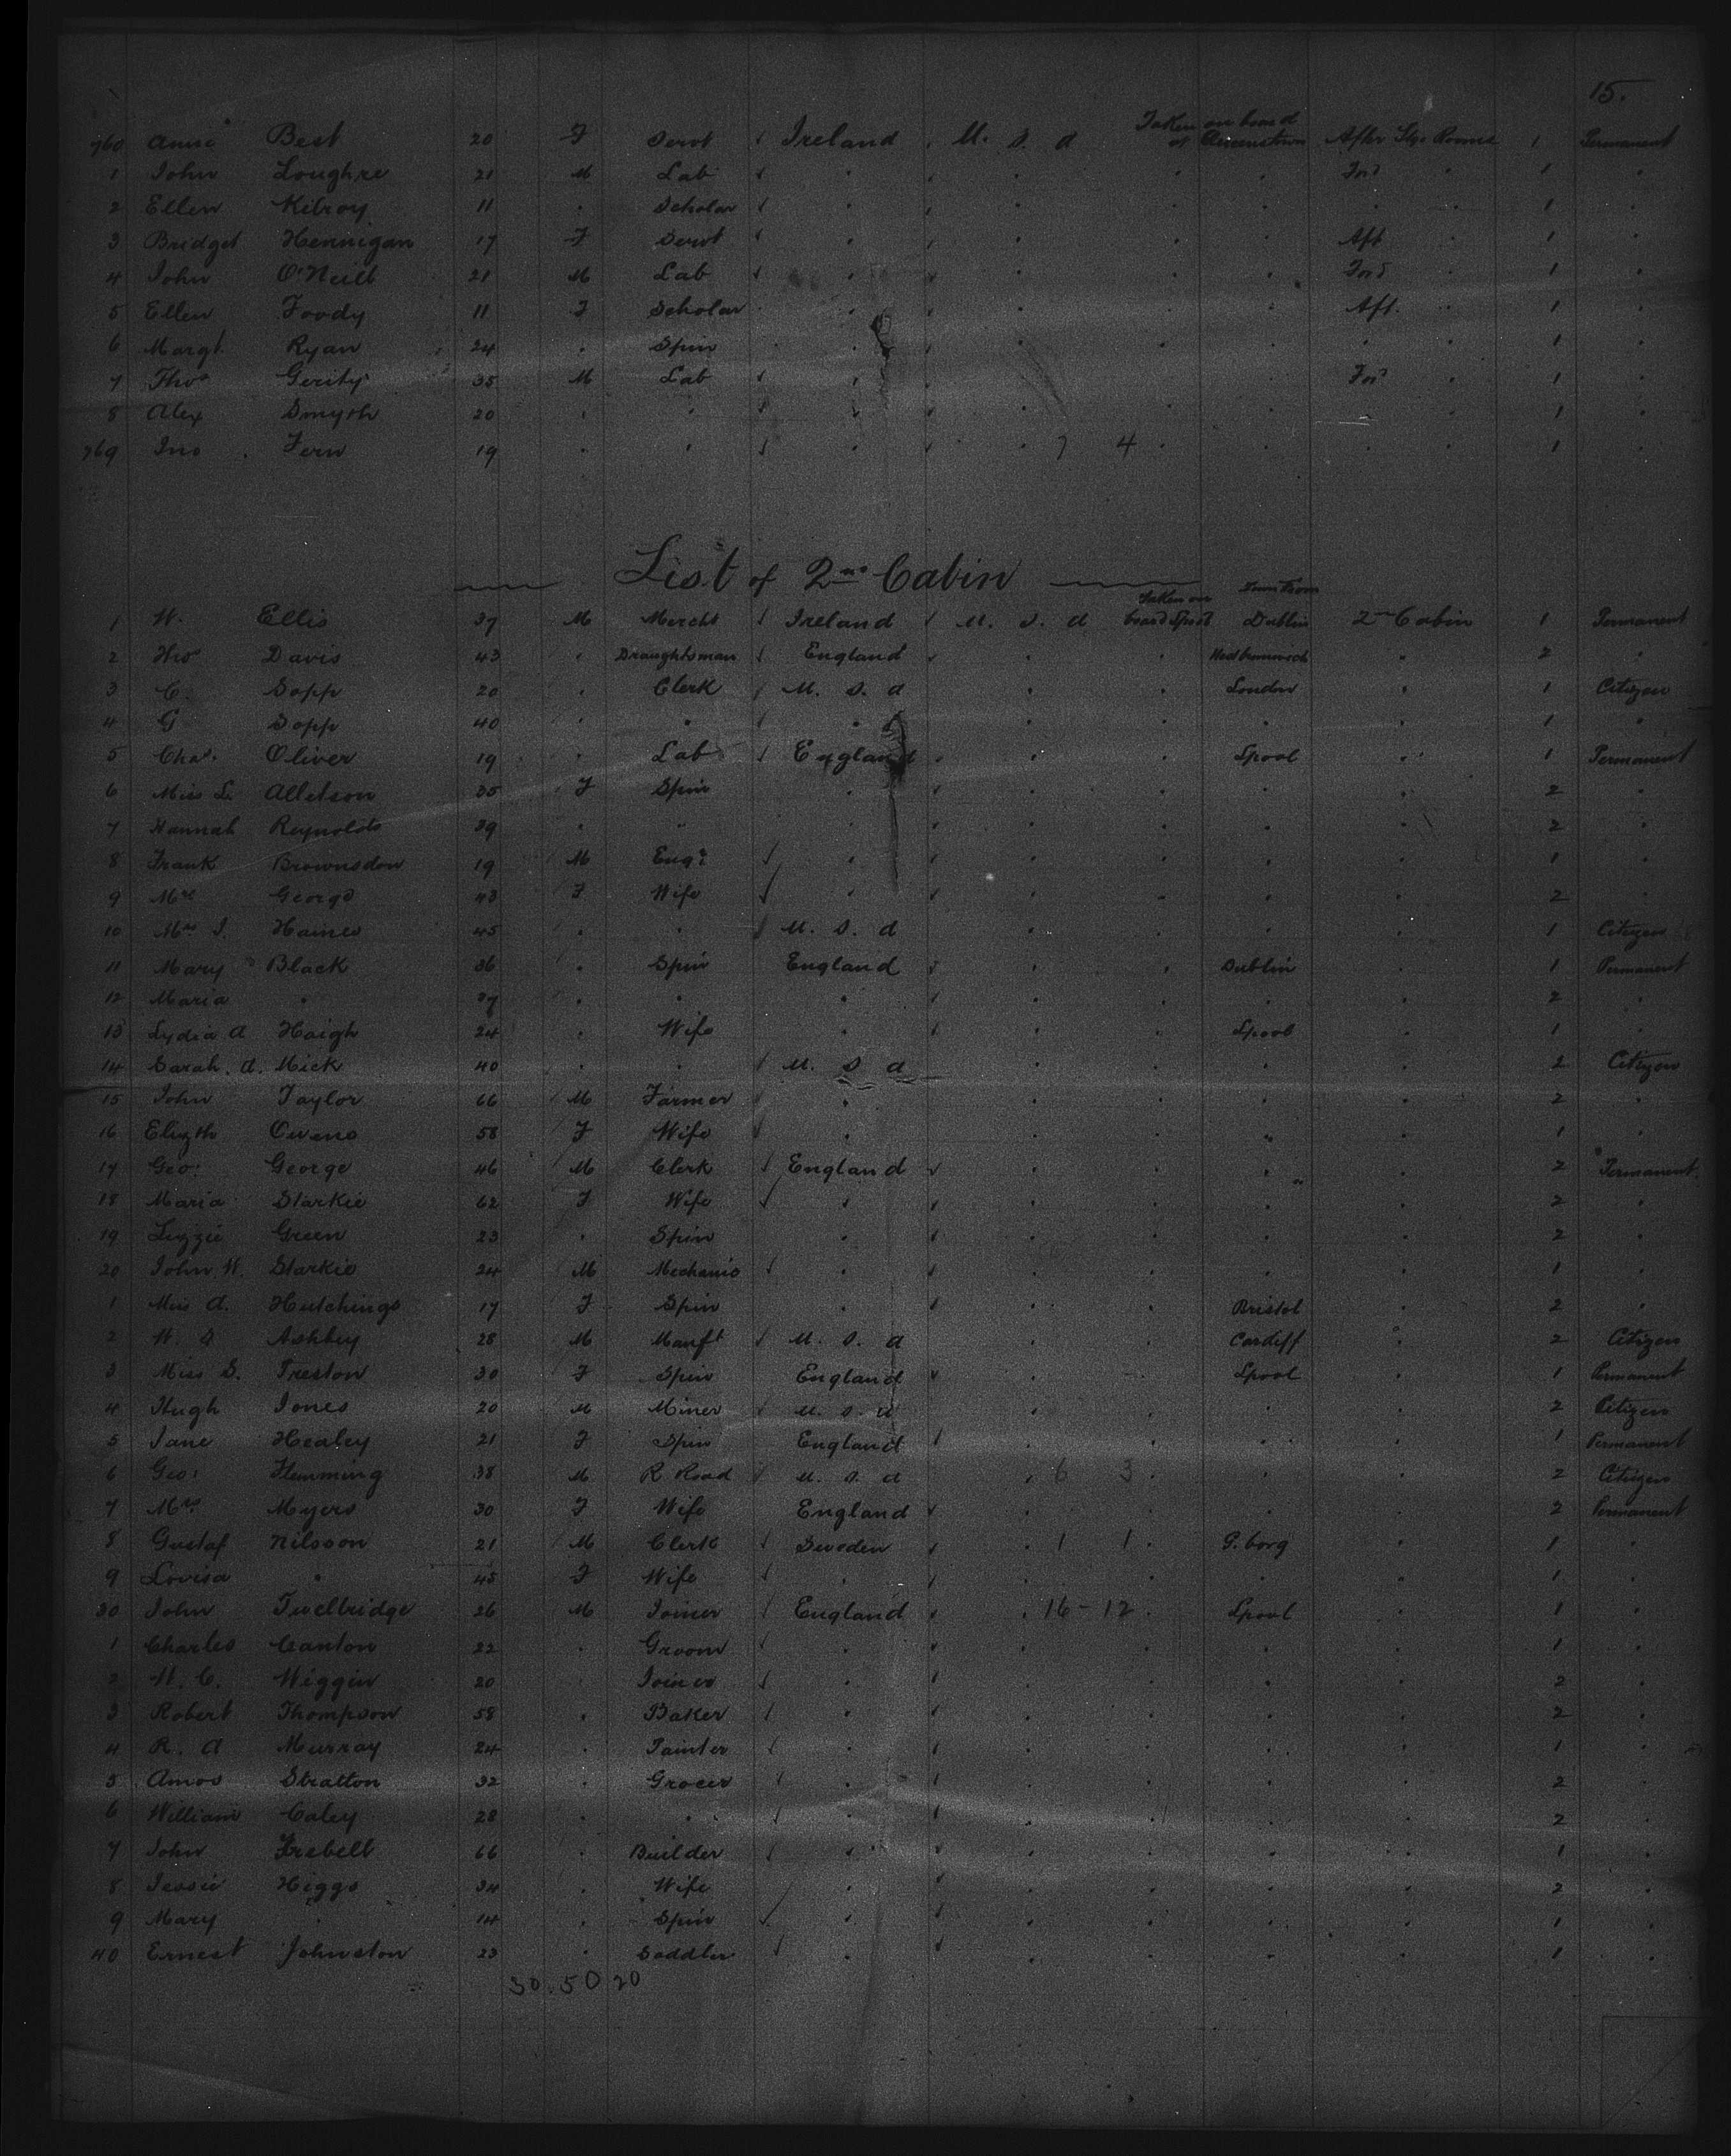 15.
760 Annie Best 20 F Servt Ireland U. S. A Taken on board at Queenstown After Stge Rooms 1 Permanent
1 John Loughre 21 M Lab " " " " " For'd " 1 "
2 Ellen Kilroy 11 " Scholar " " " " " " " 1 "
3 Bridget Hennigan 17 F Servt " " " " " Aft " 1 "
4 John O'Neill 21 M Lab " " " " " For'd " 1 "
5 Ellen Foody 11 F Scholar " " " " " Aft. " 1 "
6 Margt Ryan 24 " Spin " " " " " " " 1 "
7 Thos Gerity 35 M Lab " " " " " For'd " 1 "
8 Alex Smyth 20 " " " " " " " " " 1 "
769 Jno Fern 19 " " " " " 7 4 " " " " 1 "
List of 2nd Cabin
1 W. Ellis 37 M Mercht Ireland U. S. A Taken on board Lpool Dublin 2nd Cabin 1 Permanent
2 Thos Davis 43 " Draughtsman England " " " " 2 "
3 C. Sopp 20 " Clerk U. S. A " " London " 1 Citizen
4 G Sopp 40 " " " " " " " 1 "
5 Chas. Oliver 19 " Lab England " " Lpool " 1 Permanent
6 Miss L. Alletson 35 F Spin " " " " " 2 "
7 Hannah Reynolds 39 " " " " " " " 2 "
8 Frank Brownsdon 19 M Engr " " " " " 1 "
9 Mrs George 43 F Wife " " " " " 2 "
10 Mrs J. Haines 45 " " U. S. A " " " " 1 Citizen
11 Mary Black 36 " Spin England " " Dublin " 1 Permanent
12 Maria " 37 " " " " " " " 2 "
13 Lydia A Haigh 24 " Wife " " " Lpool " 1 "
14 Sarah. A. Mick 40 " " U. S. A " " " " 2 Citizen
15 John Taylor 66 M Farmer " " " " " 2 "
16 Elizth Owens 58 F Wife " " " " " 1 "
17 Geo: George 46 M Clerk England " " " " 2 Permanent.
18 Maria Starkie 62 F Wife " " " " " 2 "
19 Lizzie Green 23 " Spin " " " " " 2 "
20 John W. Starkie 24 M Mechanic " " " " " 1 "
1 Miss A. Hutchings 17 F Spin " " " Bristol " 2 "
2 W. S Ashbey 28 M Manft U. S. A " " Cardiff " 2 Citizen
3 Miss S. Preston 30 F Spin England " " Lpool " 1 Permanent
4 Hugh Jones 20 M Miner U. S. A " " " " 2 Citizen
5 Jane Healey 21 F Spin England " " " " 1 Permanent
6 Geo: Flemming 38 M R Road U. S. A " 6 3 " " " 2 Citizen
7 Mrs Myers 30 F Wife England " " " " 2 Permanent
8 Gustaf Nilsson 21 M Clerk Sweden " 1 1 " G. borg " 1 "
9 Lovisa " 45 F Wife " " " " " 1 "
30 John Twelbridge 26 M Joiner England " 16-12 " Lpool " 1 "
1 Charles Canton 22 " Groom " " " " " 1 "
2 W. C. Wiggin 20 " Joiner " " " " " 2 "
3 Robert Thompson 58 " Baker " " " " " 2 "
4 R. A Murray 24 " Painter " " " " " 1 "
5 Amos Stratton 32 " Grocer " " " " " 2 "
6 William Caley 28 " " " " " " " 2 "
7 John Trebell 66 " Builder " " " " " 1 "
8 Jessie Higgs 34 " Wife " " " " " 2 "
9 Mary " 14 " Spin " " " " " 1 "
40 Ernest Johnston 23 " Saddler " " " " " 1 "
30.50 20